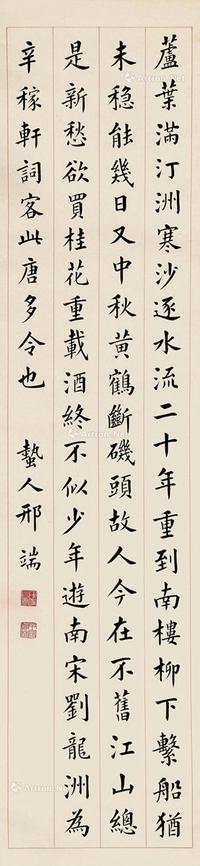 蘆葉滿汀洲寒沙逐水流二十年重到南樓柳下繫船猶
未稳能幾日又中秋黃鶴斷磯頭故人今在不舊江山總
是新愁欲買桂花重載酒終不似少年遊南宋劉龍洲為
辛稼軒詞客此唐多令也 蟄人邢端